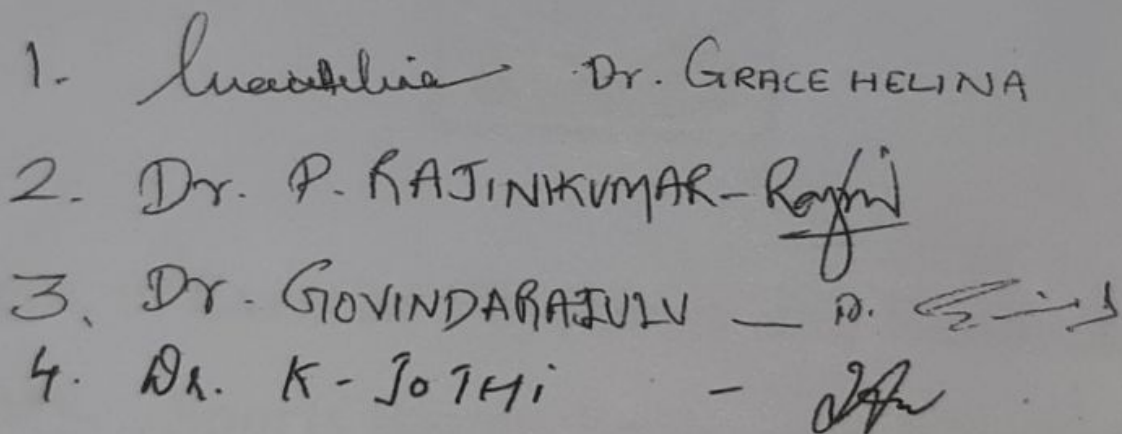 1. Dr. GRACE HELINA
2. Dr. P. RAJINIKUMAR - Rajini
3. Dr. GOVINDARAJULU -
4. Dr. K - JOTHi -